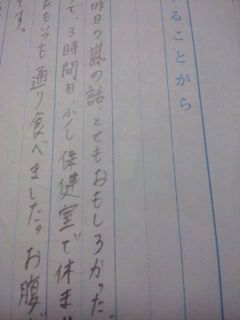 ることがら
昨日の嵐の話、とてもおもしろかった
で、3時間目、少し保健室で休ま
もいつも通り食べました。お腹
です。